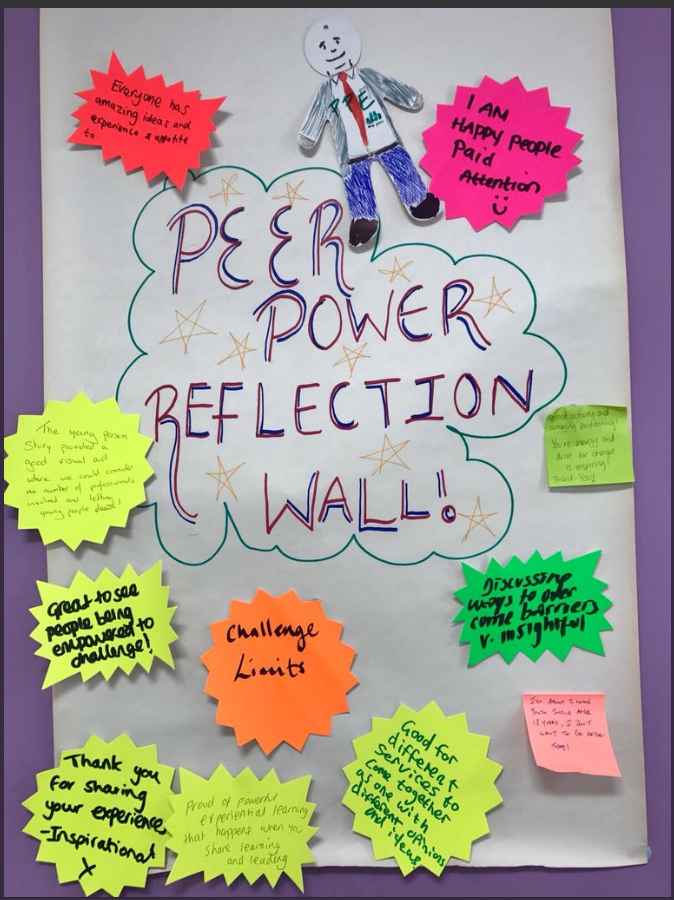 Everyone has
amazing ideas and
experience & appetite
to
PPE
I AM
HAPPY people
Paid
Attention
PEER
POWER
REFLECTION
WALL!
The young person
Story provided a
good visual aid
where we could consider
the number of professionals
involved and letting
young people
Great activity and
amazing
You're energy and
drive for change
is inspiring!
Thank you!
Great to see
people being
empowered to
challenge!
Challenge
Limits
Discussing
ways to over
come barriers
v. insightful
I'm about to leave
Youth Justice after
18 years, I don't
want to go after
today!
Thank you
for sharing
your experience
-Inspirational
X
Proud of powerful
experiential learning
that happens when you
share learning
and leading
Good for
different
services to
come together
as one with
different opinions
and ideas